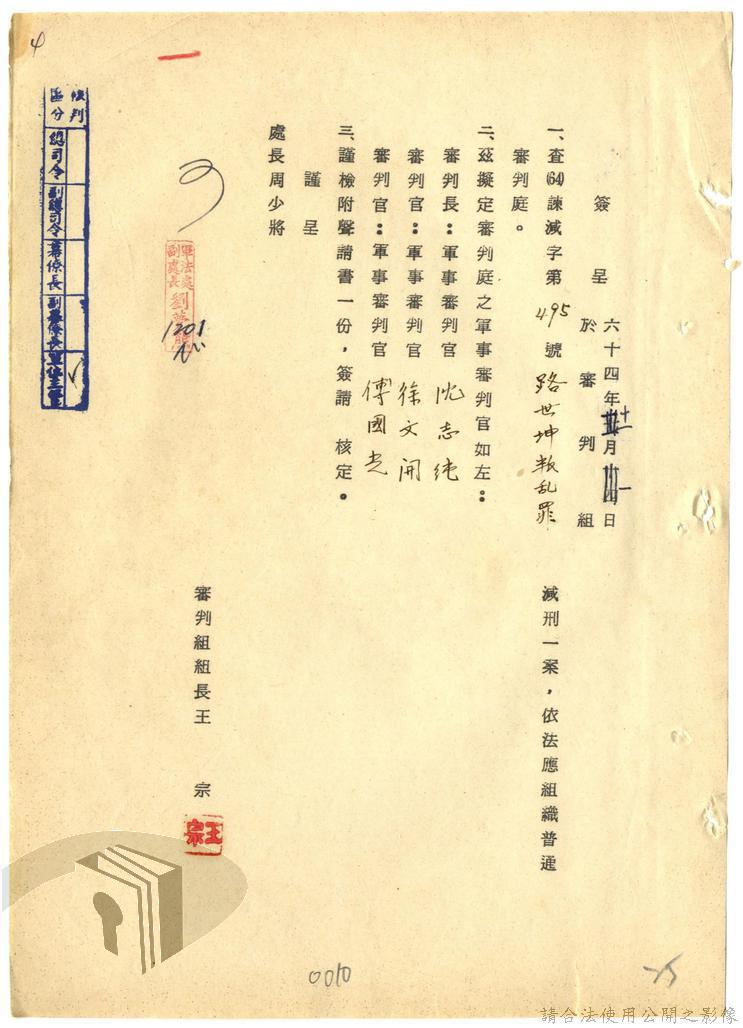 簽呈
六十四年十二月一日
於審判組
一、查(64)諫減字第495號路世坤叛乱罪減刑一案，依法應組織普通
審判庭。
二、茲擬定審判庭之軍事審判官如左：
審判長：軍事審判官 沈志純
審判官：軍事審判官 徐文開
審判官：軍事審判官 傅國光
三、謹檢附聲請書一份，簽請 核定。
謹呈
處長周少將
審判組組長王 宗
王宗
軍法處
副處長 劉
1201
核判
區分
總司令
副總司令
幕僚長
副幕僚長
4
0010
25
請合法使用公開之影像